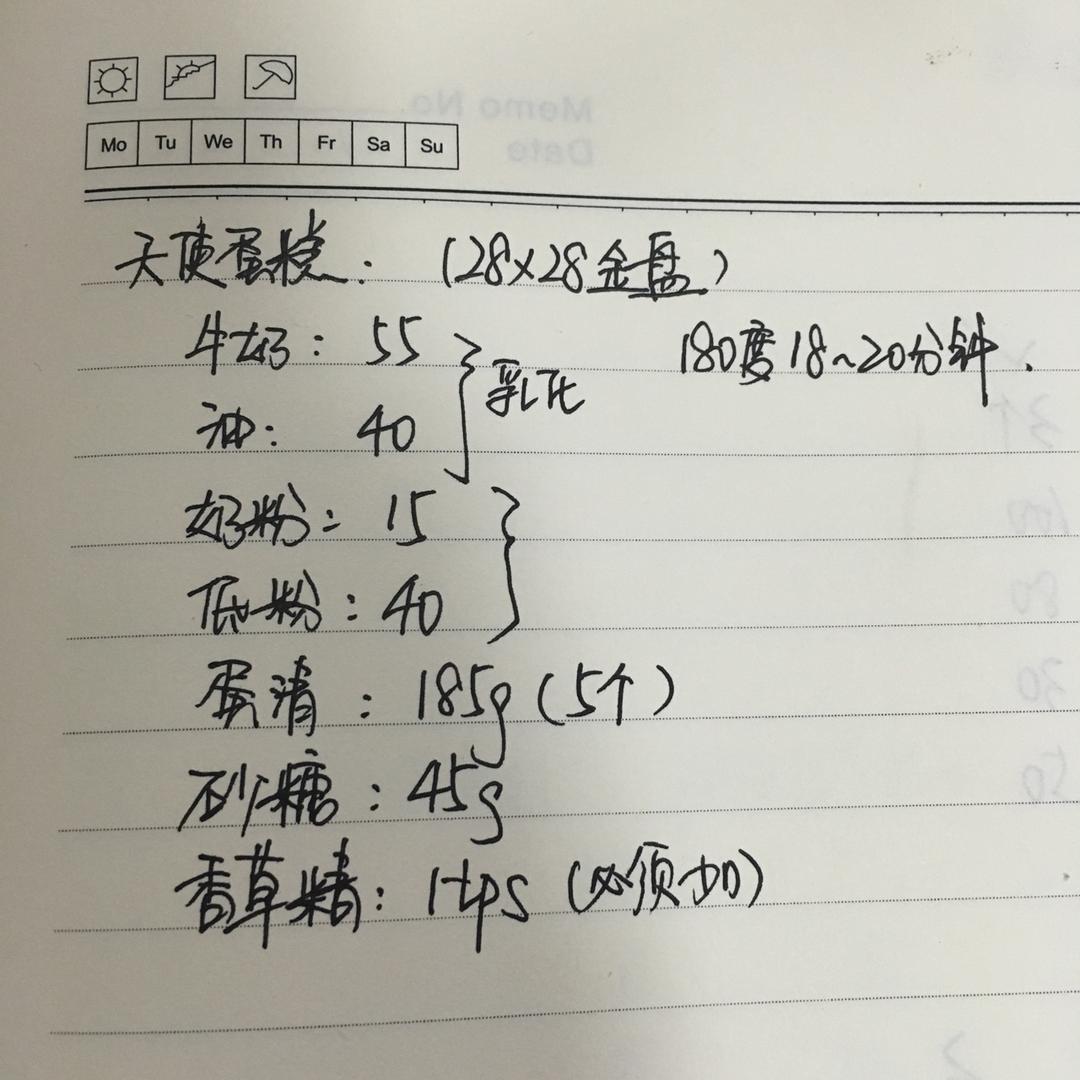 Memo No.
Date
Mo Tu We Th Fr Sa Su
天使蛋糕. (28×28金盘)
牛奶: 55
180度18~20分钟.
乳化
油: 40
奶粉: 15
低粉: 40
蛋清: 185g(5个)
砂糖: 45g
香草精: 1tps (必须加)
3个
100
80
30
50